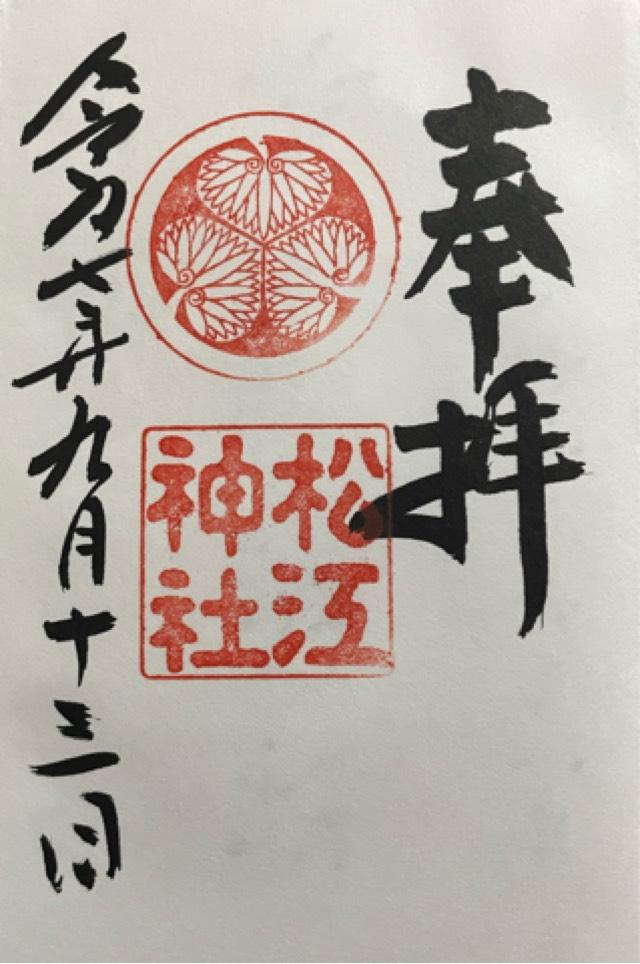 奉拝
松江
神社
令和七年九月十三日